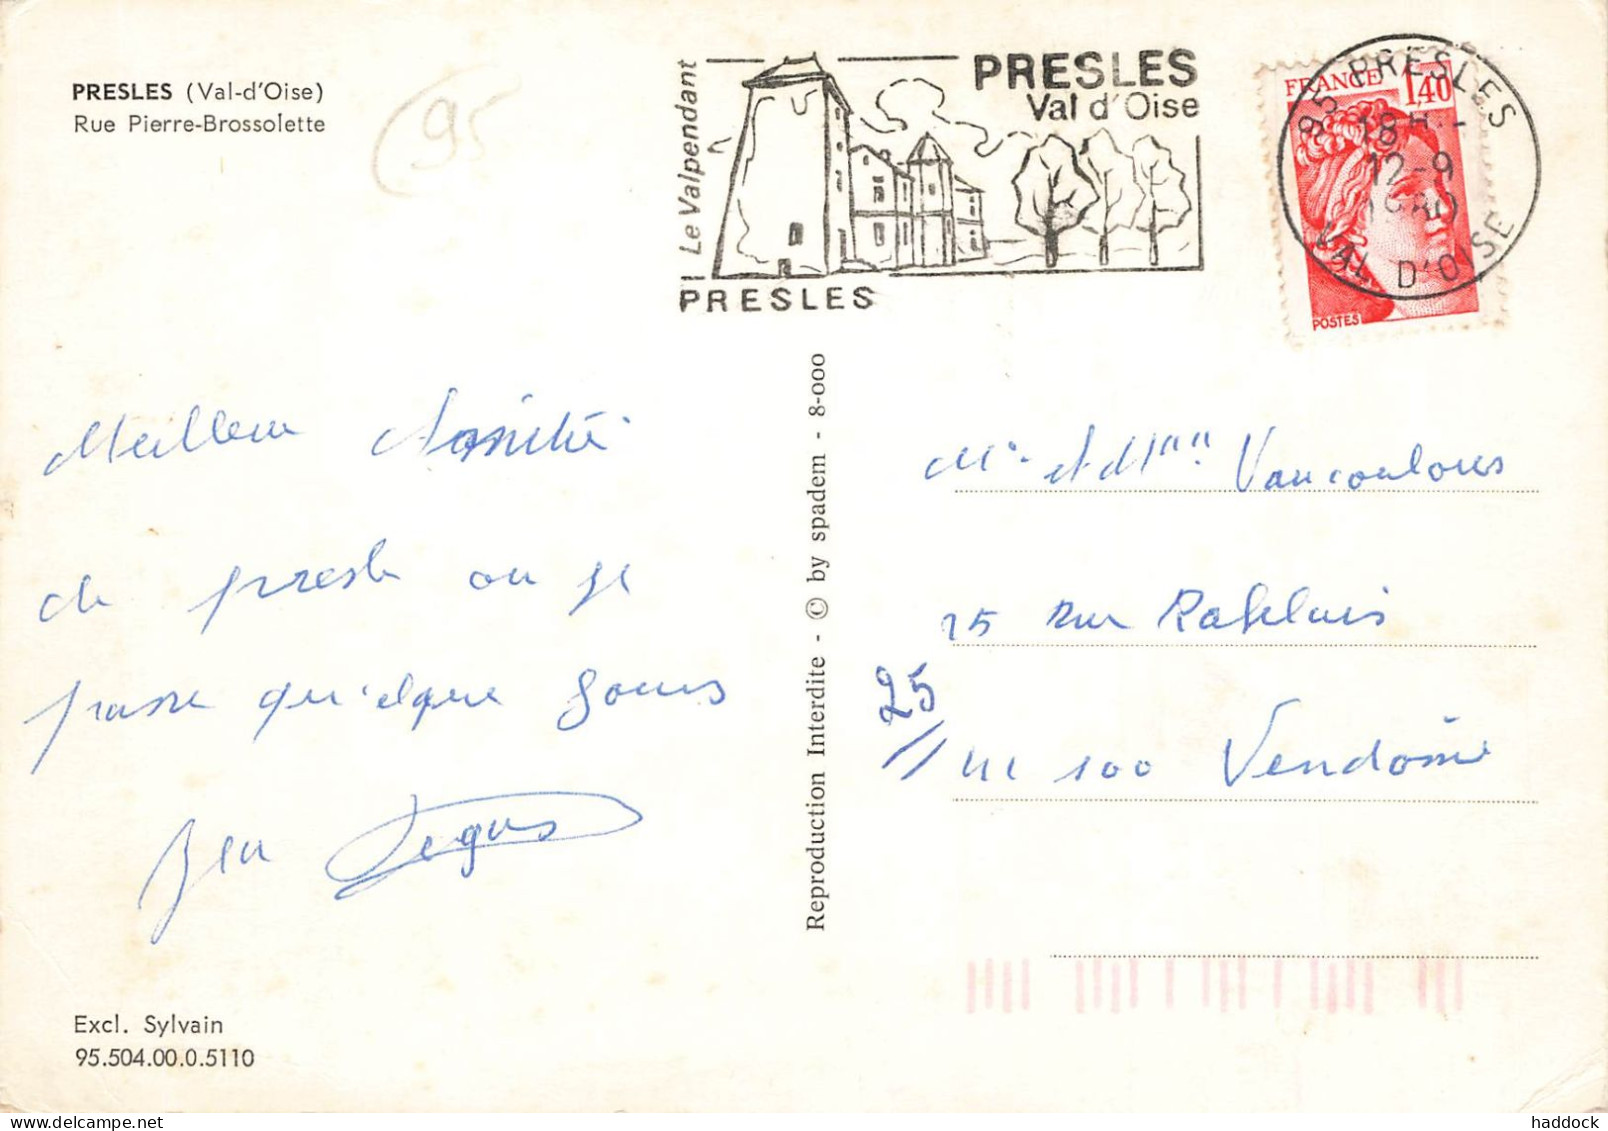 PRESLES (Val-d'Oise)
Rue Pierre-Brossolette
95
Le Valpendant
PRESLES
Val d'Oise
PRESLES
FRANCE
1,40
POSTES
95 PRESLES
18 H -
12-9
1980
VAL D'OISE
Meilleur Amitié
de presle ou je
passe qu'elque Jours
Jean
Reproduction Interdite - © by spadem - 8-000
Mr et Mme Vaucoulours
25 rue Rabelais
25
41 100 Vendôme
Excl. Sylvain
95.504.00.0.5110
delcampe.net
haddock